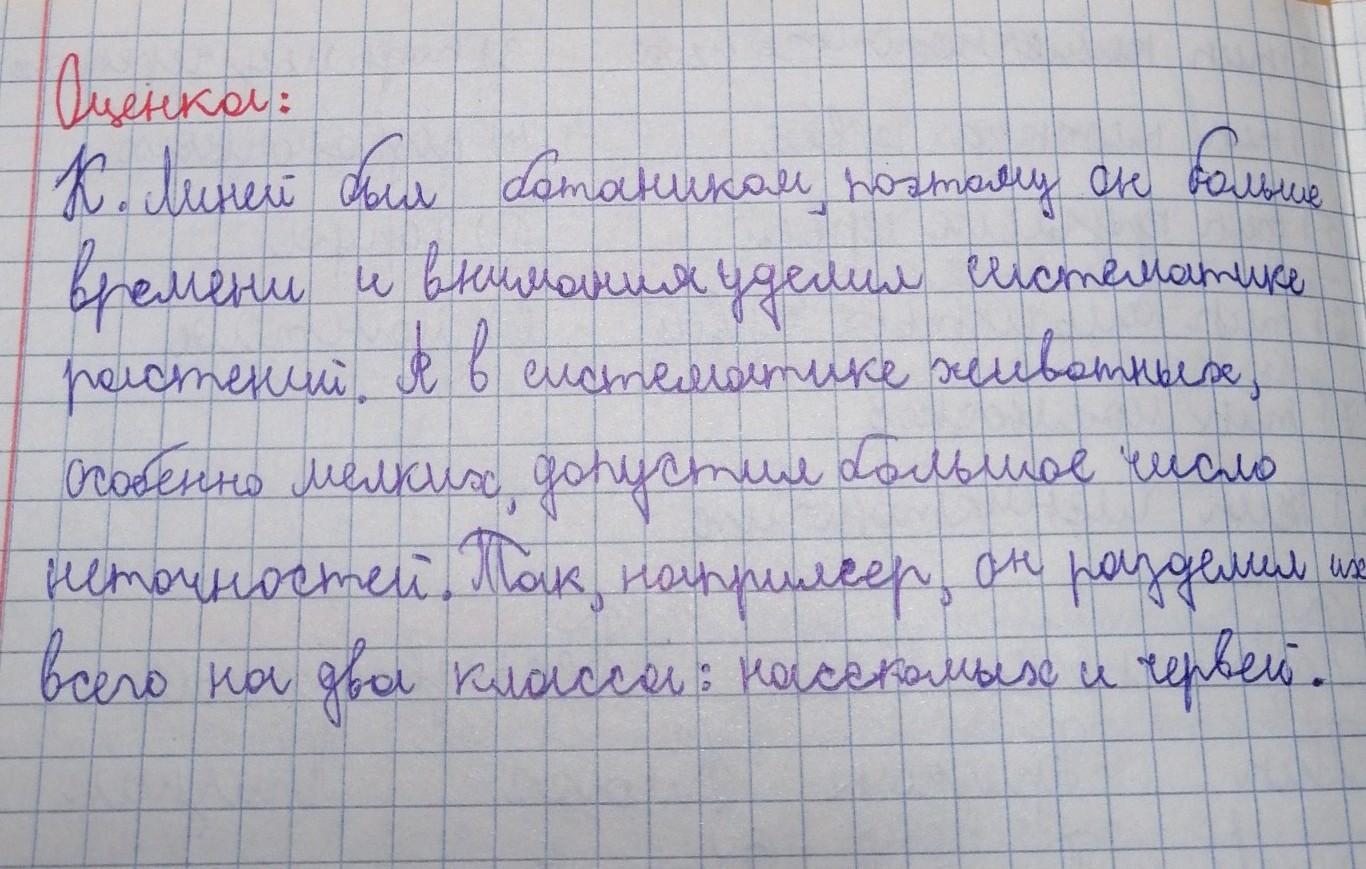 Оценка:
К. Линей был ботаником, поэтому он больше
времени и внимания уделил систематике
растений. А в систематике животных,
особенно мелких, допустил большое число
неточностей. Так, например, он разделил их
всего на два класса: насекомых и червей.